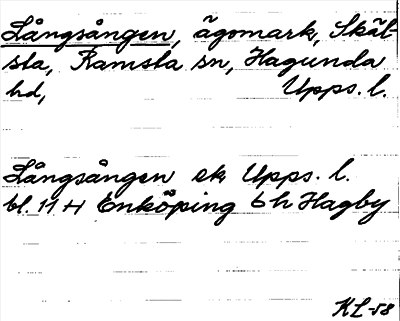 Långsången, ägomark, Skäl-
sta, Ramsta sn, Hagunda
hd, Upps. l.
Långsången ek Upps. l.
bl. 11 H Enköping 6 h Hagby
KL-58